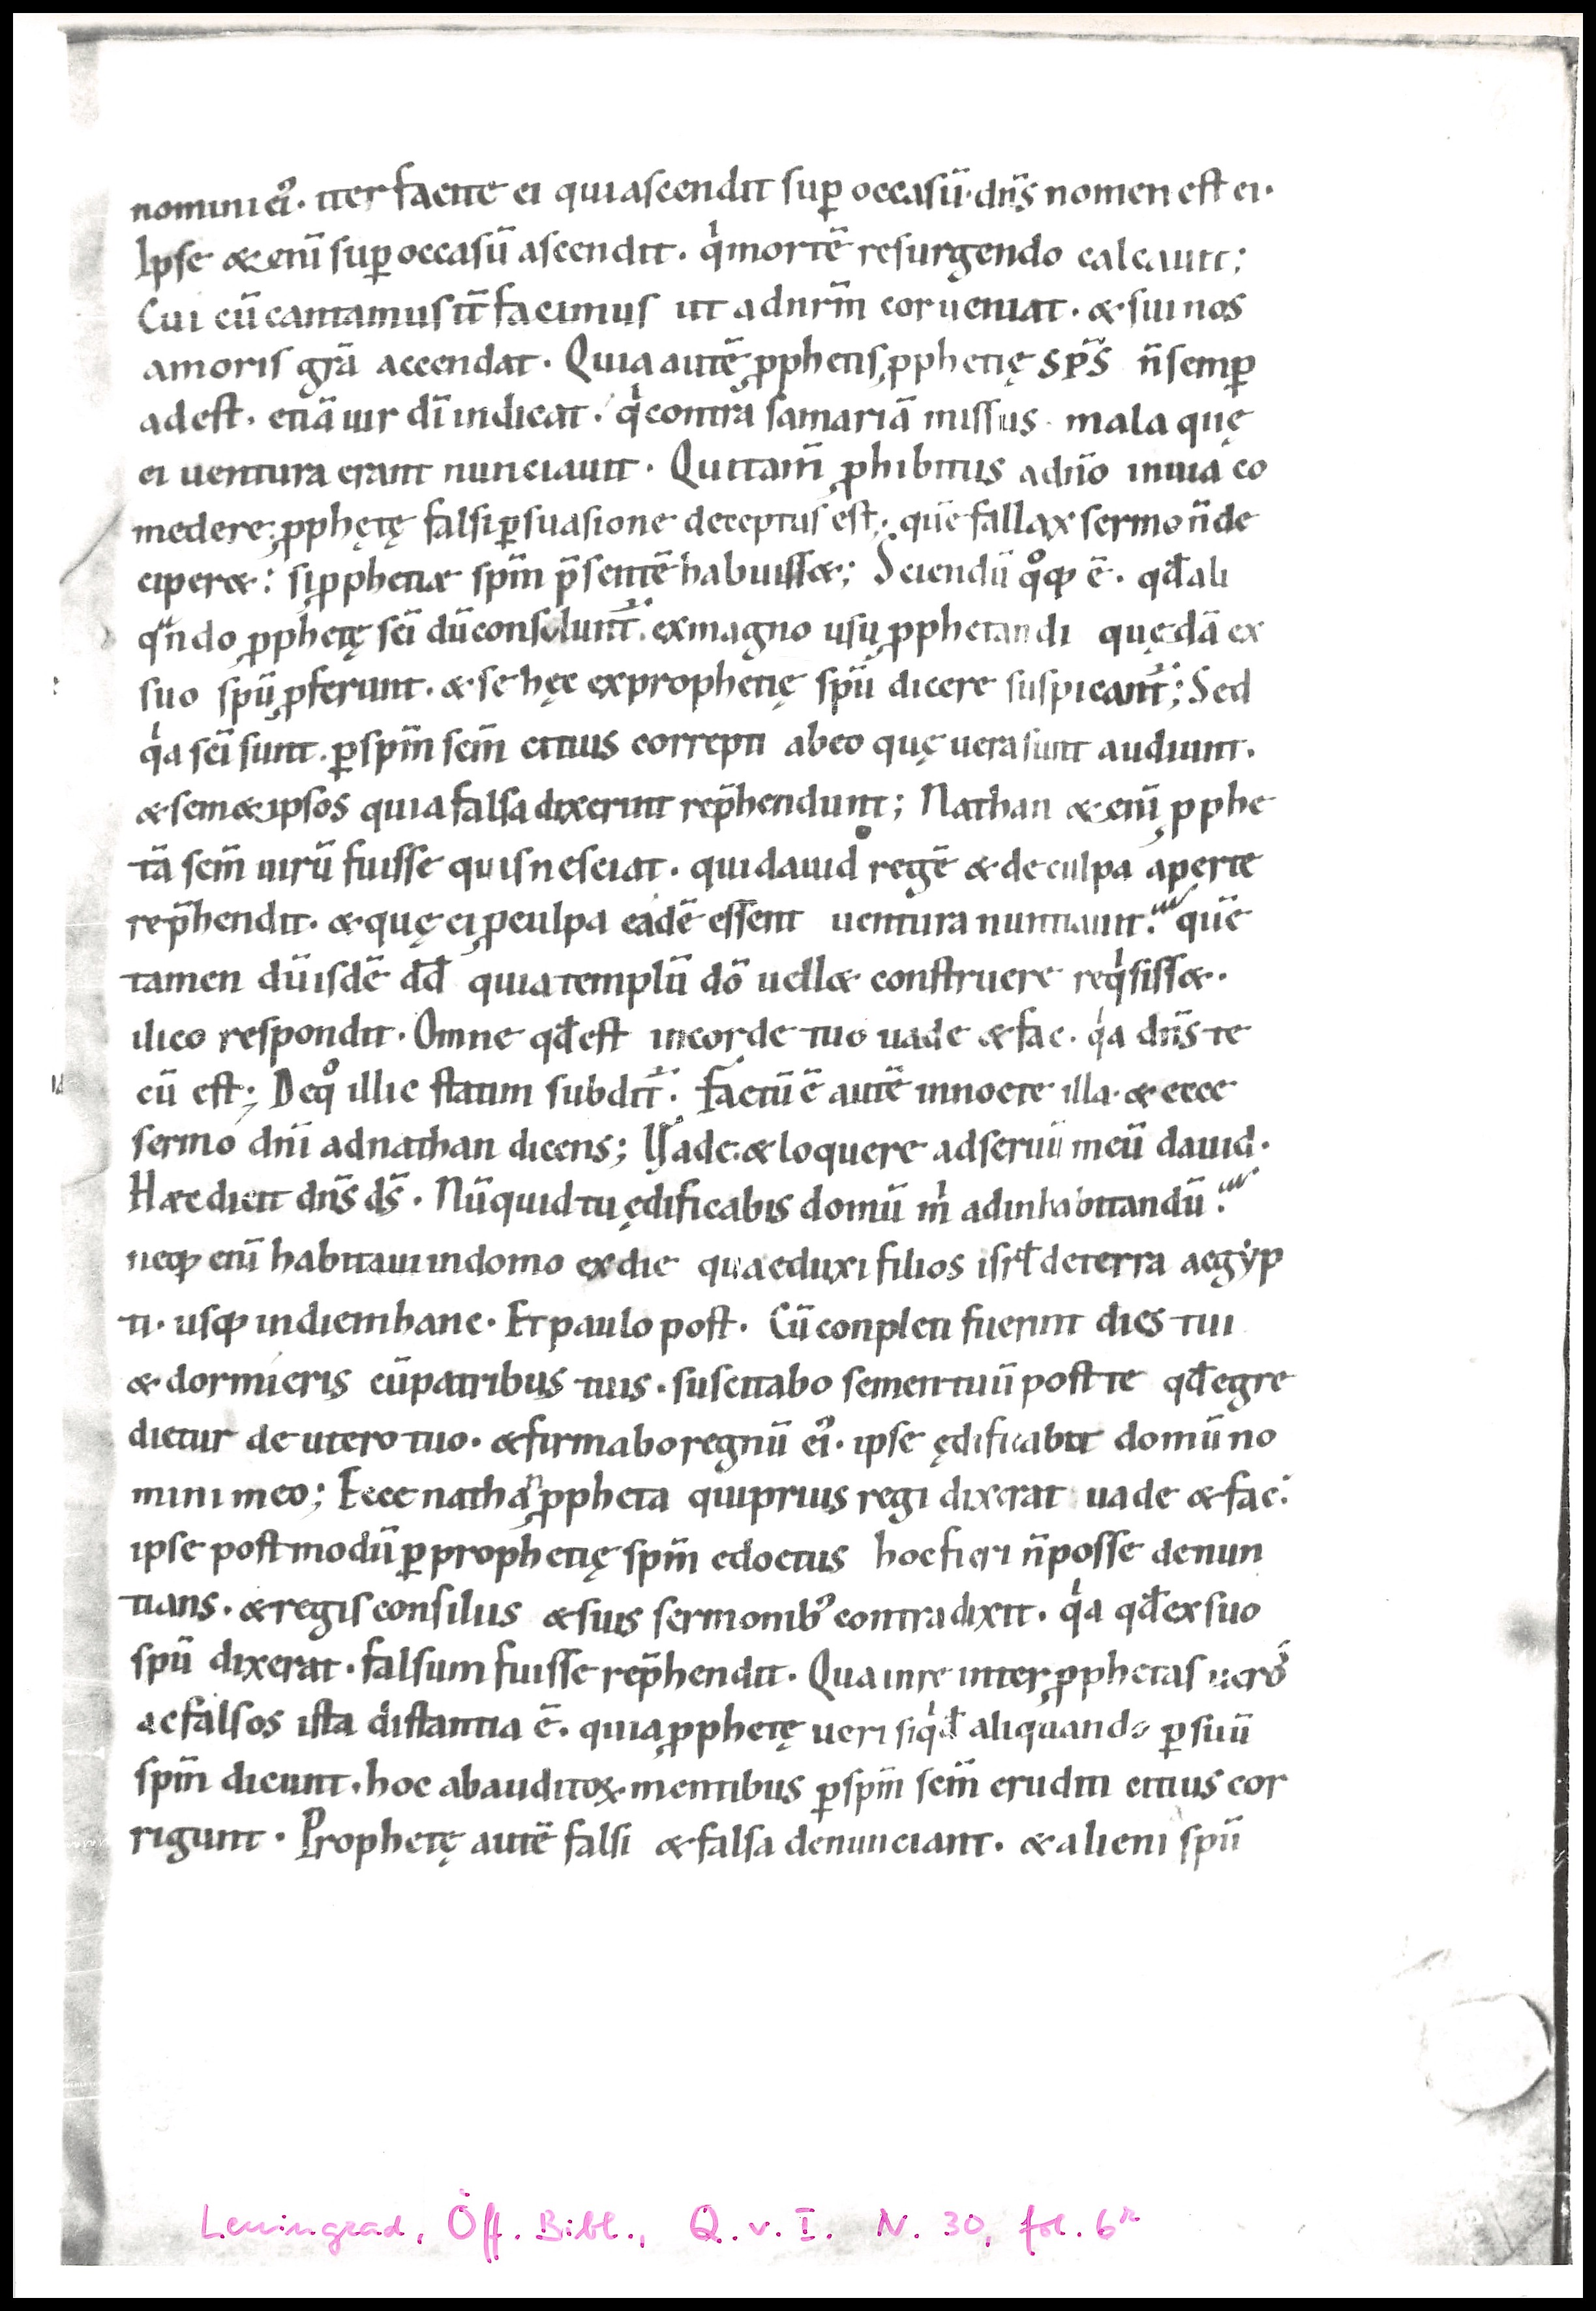 nomini ei᾽. iter facite ei qui ascendit sup̄ occasū. dn̄s nomen est ei.
Ipse &enī sup̄ occasū ascendit. qͥ mortē resurgendo calcauit;
Cui cū cantamus it̄ facimus ut ad nr̄m cor ueniat. & sui nos
amoris gr̄a accendat. Quia autē ꝓphetis ꝓphetię sp̄s n̄ semp̄
adest. etiā uir dī indicat. qͥ contra samariā missus. mala quę
ei uentura erant nunciauit. Qui tam̄ ꝓhibitus a dn̄o in uia co
medere; ꝓphętę falsi ꝑsuasione deceptus est. quē fallax sermo n̄ de
ciper&; si ꝓphetiæ sp̄m p̄sentē habuiss&; Sciendū qͦꝙ ē. qd̄ ali
qᵃndo ꝓphetę sc̄i dū consulunt᷑. ex magno usu ꝓphetandi quędā ex
suo spū ꝓferunt. & se hęc ex prophetię spū dicere suspicant᷑; Sed
qͥa sc̄i sunt. ꝑ sp̄m sc̄m citius correpti ab eo quę uera sunt audiunt.
& sem&ipsos quia falsa dixerint rep̄hendunt; Nathan &enī ꝓphe
tā sc̄m uirū fuisse quis nesciat. qui dauid regē & de culpa aperte
rep̄hendit. & quę ei ꝓ culpa eadē essent uentura nuntiauit. quē
tamen dū isdē dd̄ quia templū dō uell& construere reqͥsiss&.
ilico respondit. Omne qd̄ est in corde tuo uade & fac. qͥa dn̄s te
cū est; Deqͦ illic statim subdit᷑. Factū ē autē in nocte illa. & ecce
sermo dn̄i ad nathan dicens; Uade. & loquere ad seruū meū dauid.
Haec dicit dn̄s ds̄. Nūquid tu ędificabis domū mͥ ad inhabitandū.
neqꝫ enī habitaui in domo ex die qua eduxi filios isrl̄ de terra aegẏp
ti. usqꝫ in diem hanc. Et paulo post. Cū conpleti fuerint dies tui
& dormieris cū patribus tuis. suscitabo semen tuū post te qd̄ egre
dietur de utero tuo. & firmabo regnū ei᾽. ipse ędificabit domū no
mini meo; Ecce nathaⁿ ꝓpheta qui prius regi dixerat uade & fac.
ipse postmodū ꝑ prophetię sp̄m edoctus hoc fieri n̄ posse denun
tians. & regis consiliis & suis sermonib᾽ contradixit. qͥa qd̄ ex suo
spū dixerat. falsum fuisse rep̄hendit. Qua in re inter ꝓphetas uero᷒
ac falsos ista distantia ē. quia ꝓphetę ueri siqͥd̄ aliquando ꝑ suū
sp̄m dicunt. hoc ab auditoꝝ mentibus ꝑ sp̄m sc̄m eruditi citius cor
rigunt. Prophetę autē falsi & falsa denunciant. & alieni spū
Leningrad, Öff. Bibl., Q. v. I. N. 30, fol. 6ʳ